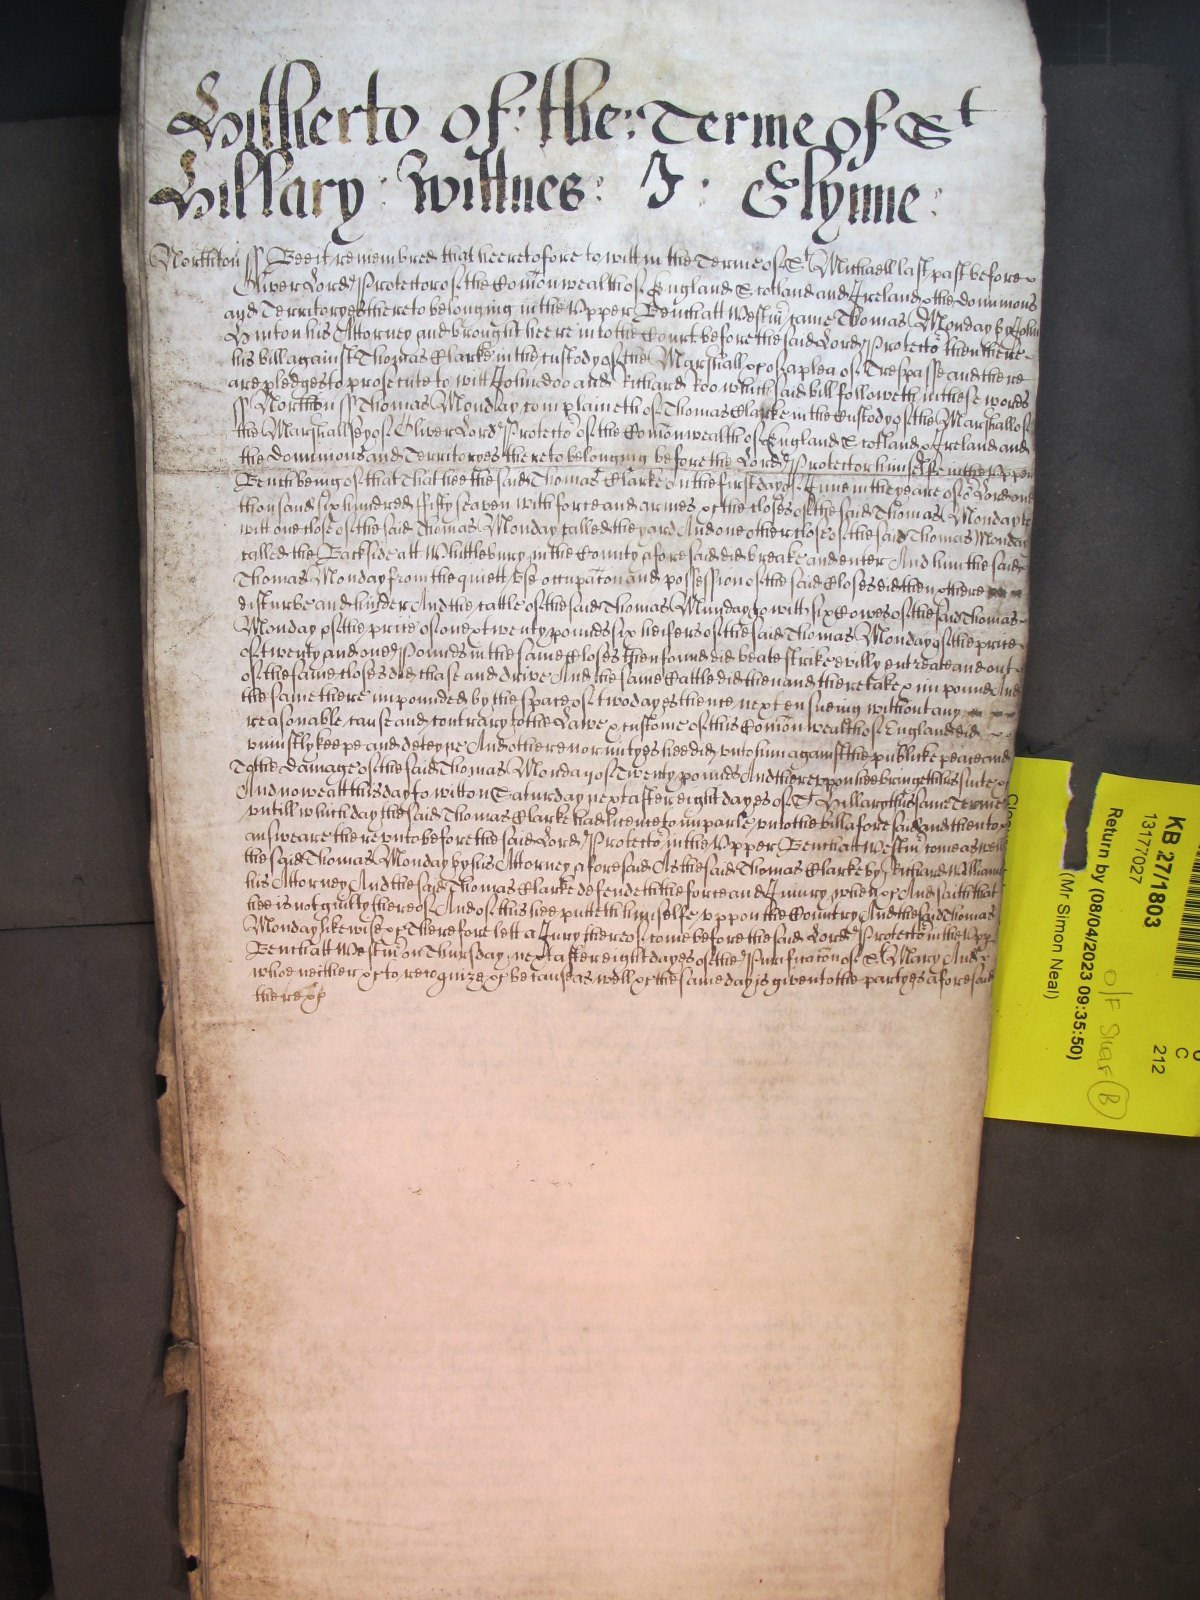 Hitherto of: the: Terme of St
Hillary: Wittnes: J: Glynne:
Northton ss Bee it remembred that heeretofore to witt in the Terme of St Michaell last past before
Oliver Lord Protector of the Comonwealth of England Scotland and Ireland & the dominions
and Territoryes thereto belonging in the Upper Bench att Westmr came Thomas Monday by John
Hinton his Attorney and brought heere into the Court before the said Lord Protector then there
his bill against Thomas Clarke in the custody of the Marshall &c of a plea of Trespasse and there
are pledges to prosecute to witt John doo and Richard Roo which said bill followeth in these words
ss Northton ss Thomas Monday complaineth of Thomas Clarke in the Custody of the Marshall of
the Marshallsey of Oliver Lord Protector of the Comonwealth of England Scotland & Ireland and
the dominions and Territoryes thereto belonging before the Lord Protector himselfe in the Upper
Bench being of that That hee the said Thomas Clarke on the first day of June in the yeare of or Lord one
thousand six hundred fifty seaven with force and armes &c the closes of the said Thomas Monday to
witt one close of the said Thomas Monday called the yard And one other close of the said Thomas Monday
called the Backside att Whittlebury in the County aforesaid did breake and enter And him the said
Thomas Monday from the quiett Use occupacon and possession of the said Closes did then & there
disturbe and hinder And the cattle of the said Thomas Munday to witt six Cowes of the said Thomas
Monday of the price of one & twenty pounds six heifers of the said Thomas Monday of the price
of twenty and one Pounds in the same Closes then found did beate strike & evilly entreate and out
of the same closes did chase and drive And the same Cattle did then and there take & impound And
the same there impounded by the space of two dayes thence next ensueing without any
reasonable cause and contrary to the Lawe & custome of this Comonwealth of England did
uniustly keepe and deteyne And other enormityes hee did unto him against the publike peace and
To the damage of the said Thomas Monday of Twenty pounds And thereuppon hee bringeth his suite &c
And now att this day to witt on Saturday next after eight dayes of St Hillary this same Terme
untill which day the said Thomas Clarke had licence to imparle unto the bill aforesaid and then to
answeare thereunto before the said Lord Protector in the Upper Bench att Westmr come as well
the said Thomas Monday by his Attorney aforesaid As the said Thomas Clarke by Richard Williams
his Attorney And the said Thomas Clarke defendeth the force and Iniury when &c And saith that
hee is not guilty thereof And of this hee putteth himselfe uppon the Country And the said Thomas
Monday likewise &c Therefore lett a Jury thereof come before the said Lord Protector in the Upper
Bench att Westmr on Thursday next after eight dayes of the Purificacon of St Mary And
whoe neither &c to recognize &c because as well &c the same day is given to the partyes aforesaid
there &c
KB 27/1803
13177027
Return by (08/04/2023 09:35:50)
(Mr Simon Neal)
C
212
B